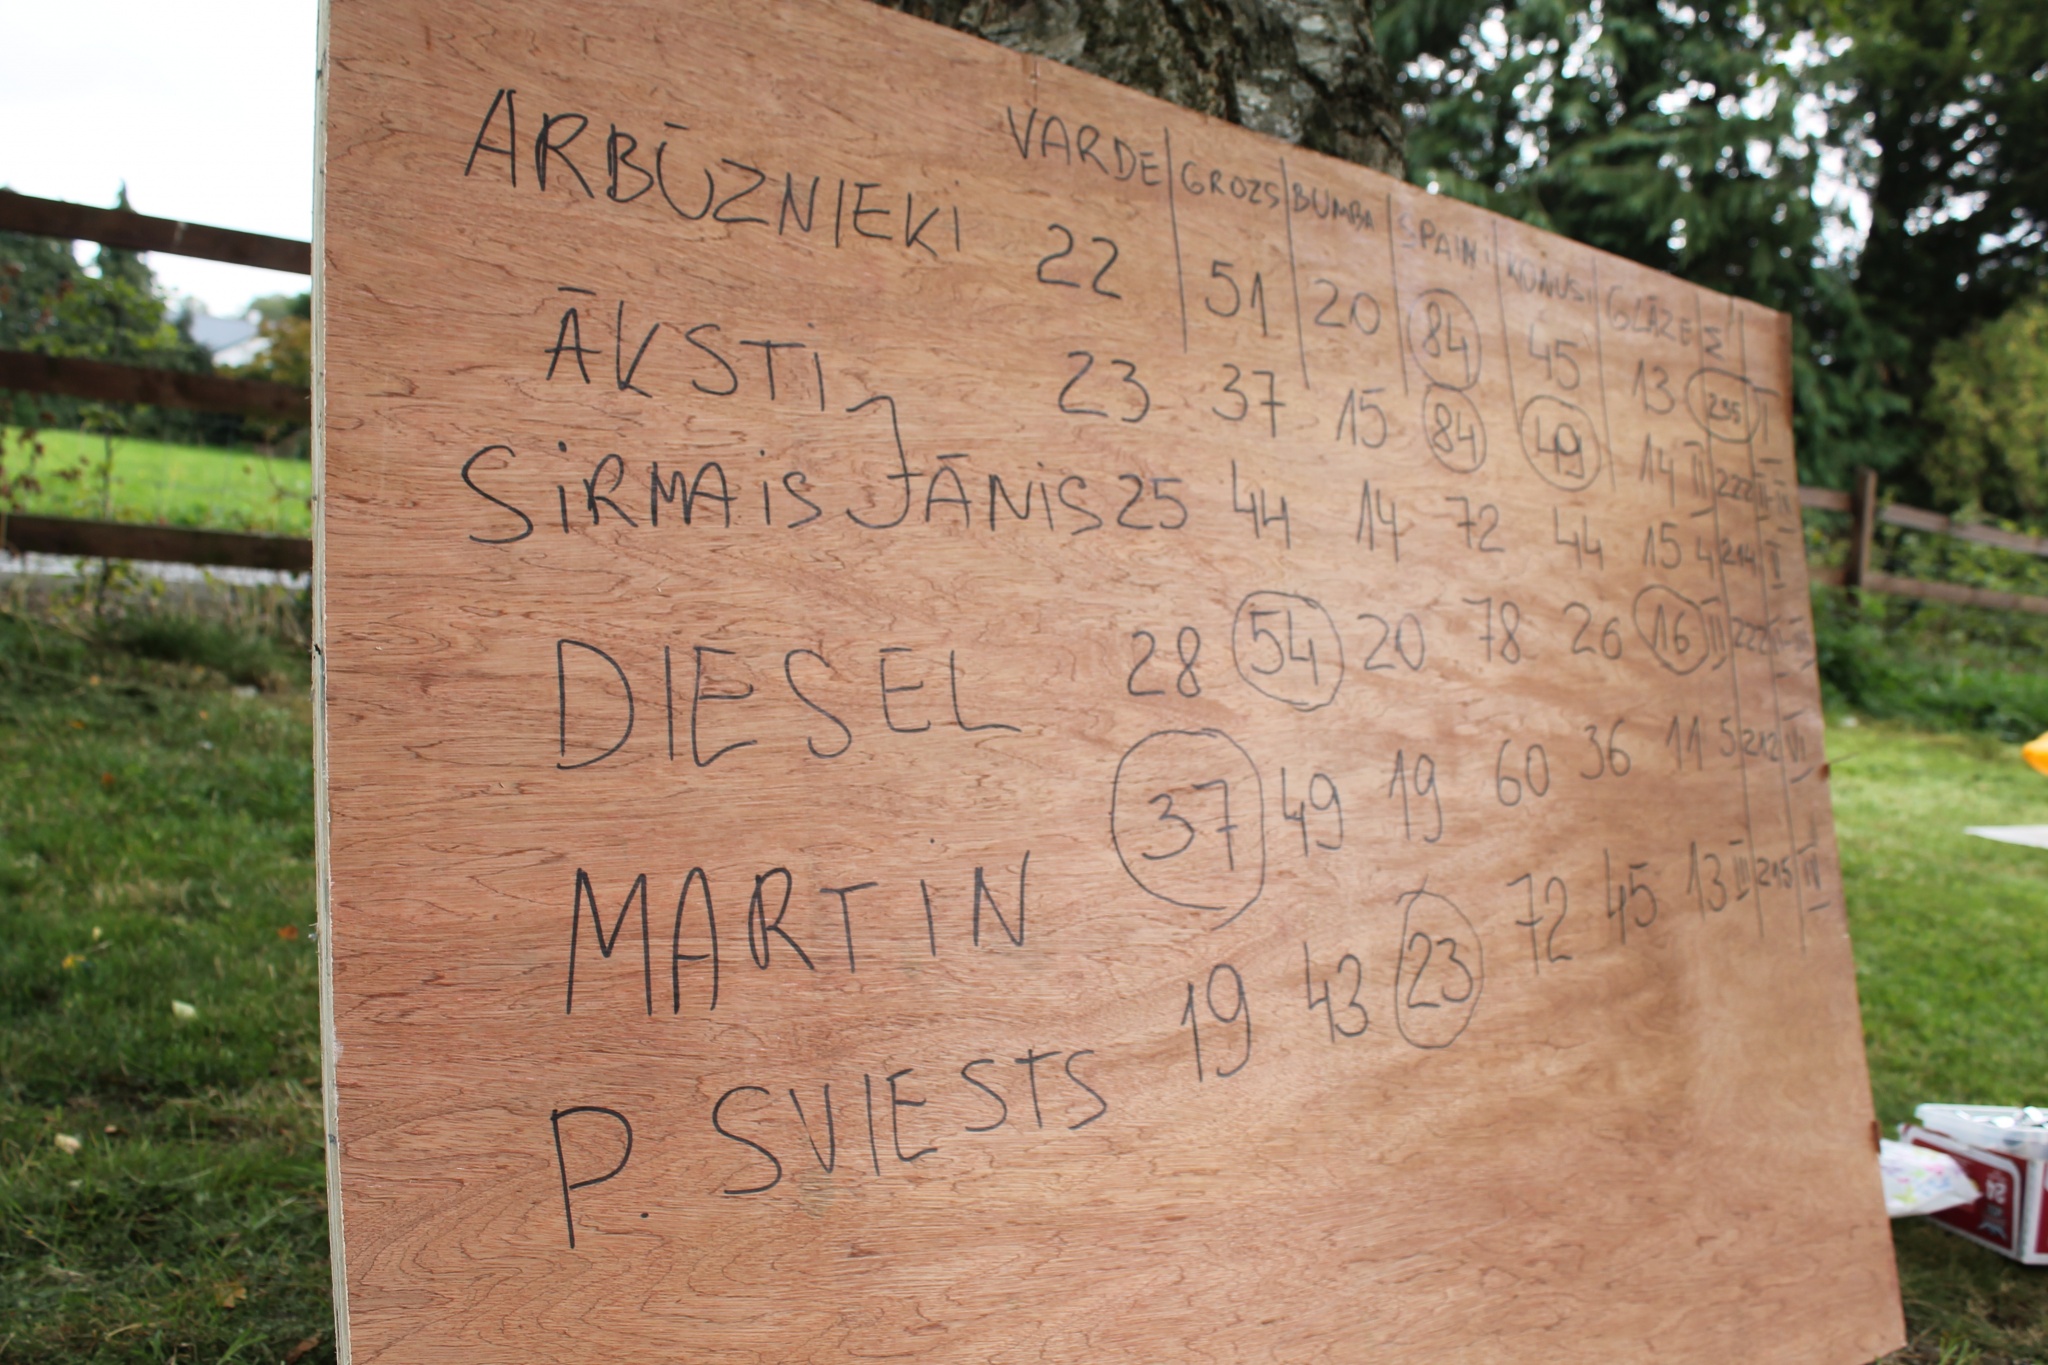 VARDE GROZS BUMBA SPAIŅI KOŅUSI GLĀZE Σ
ARBŪZNIEKI 22 51 20 84 45 13 235 I
ĀKSTI 23 37 15 84 49 14 II 222
SIRMAIS JĀNIS 25 44 14 72 44 15 4 214 V
DIESEL 28 54 20 78 26 16 II 222
MARTIN 37 49 19 60 36 11 5 212 VI
P. SVIESTS 19 43 23 72 45 13 III 215 IV
24